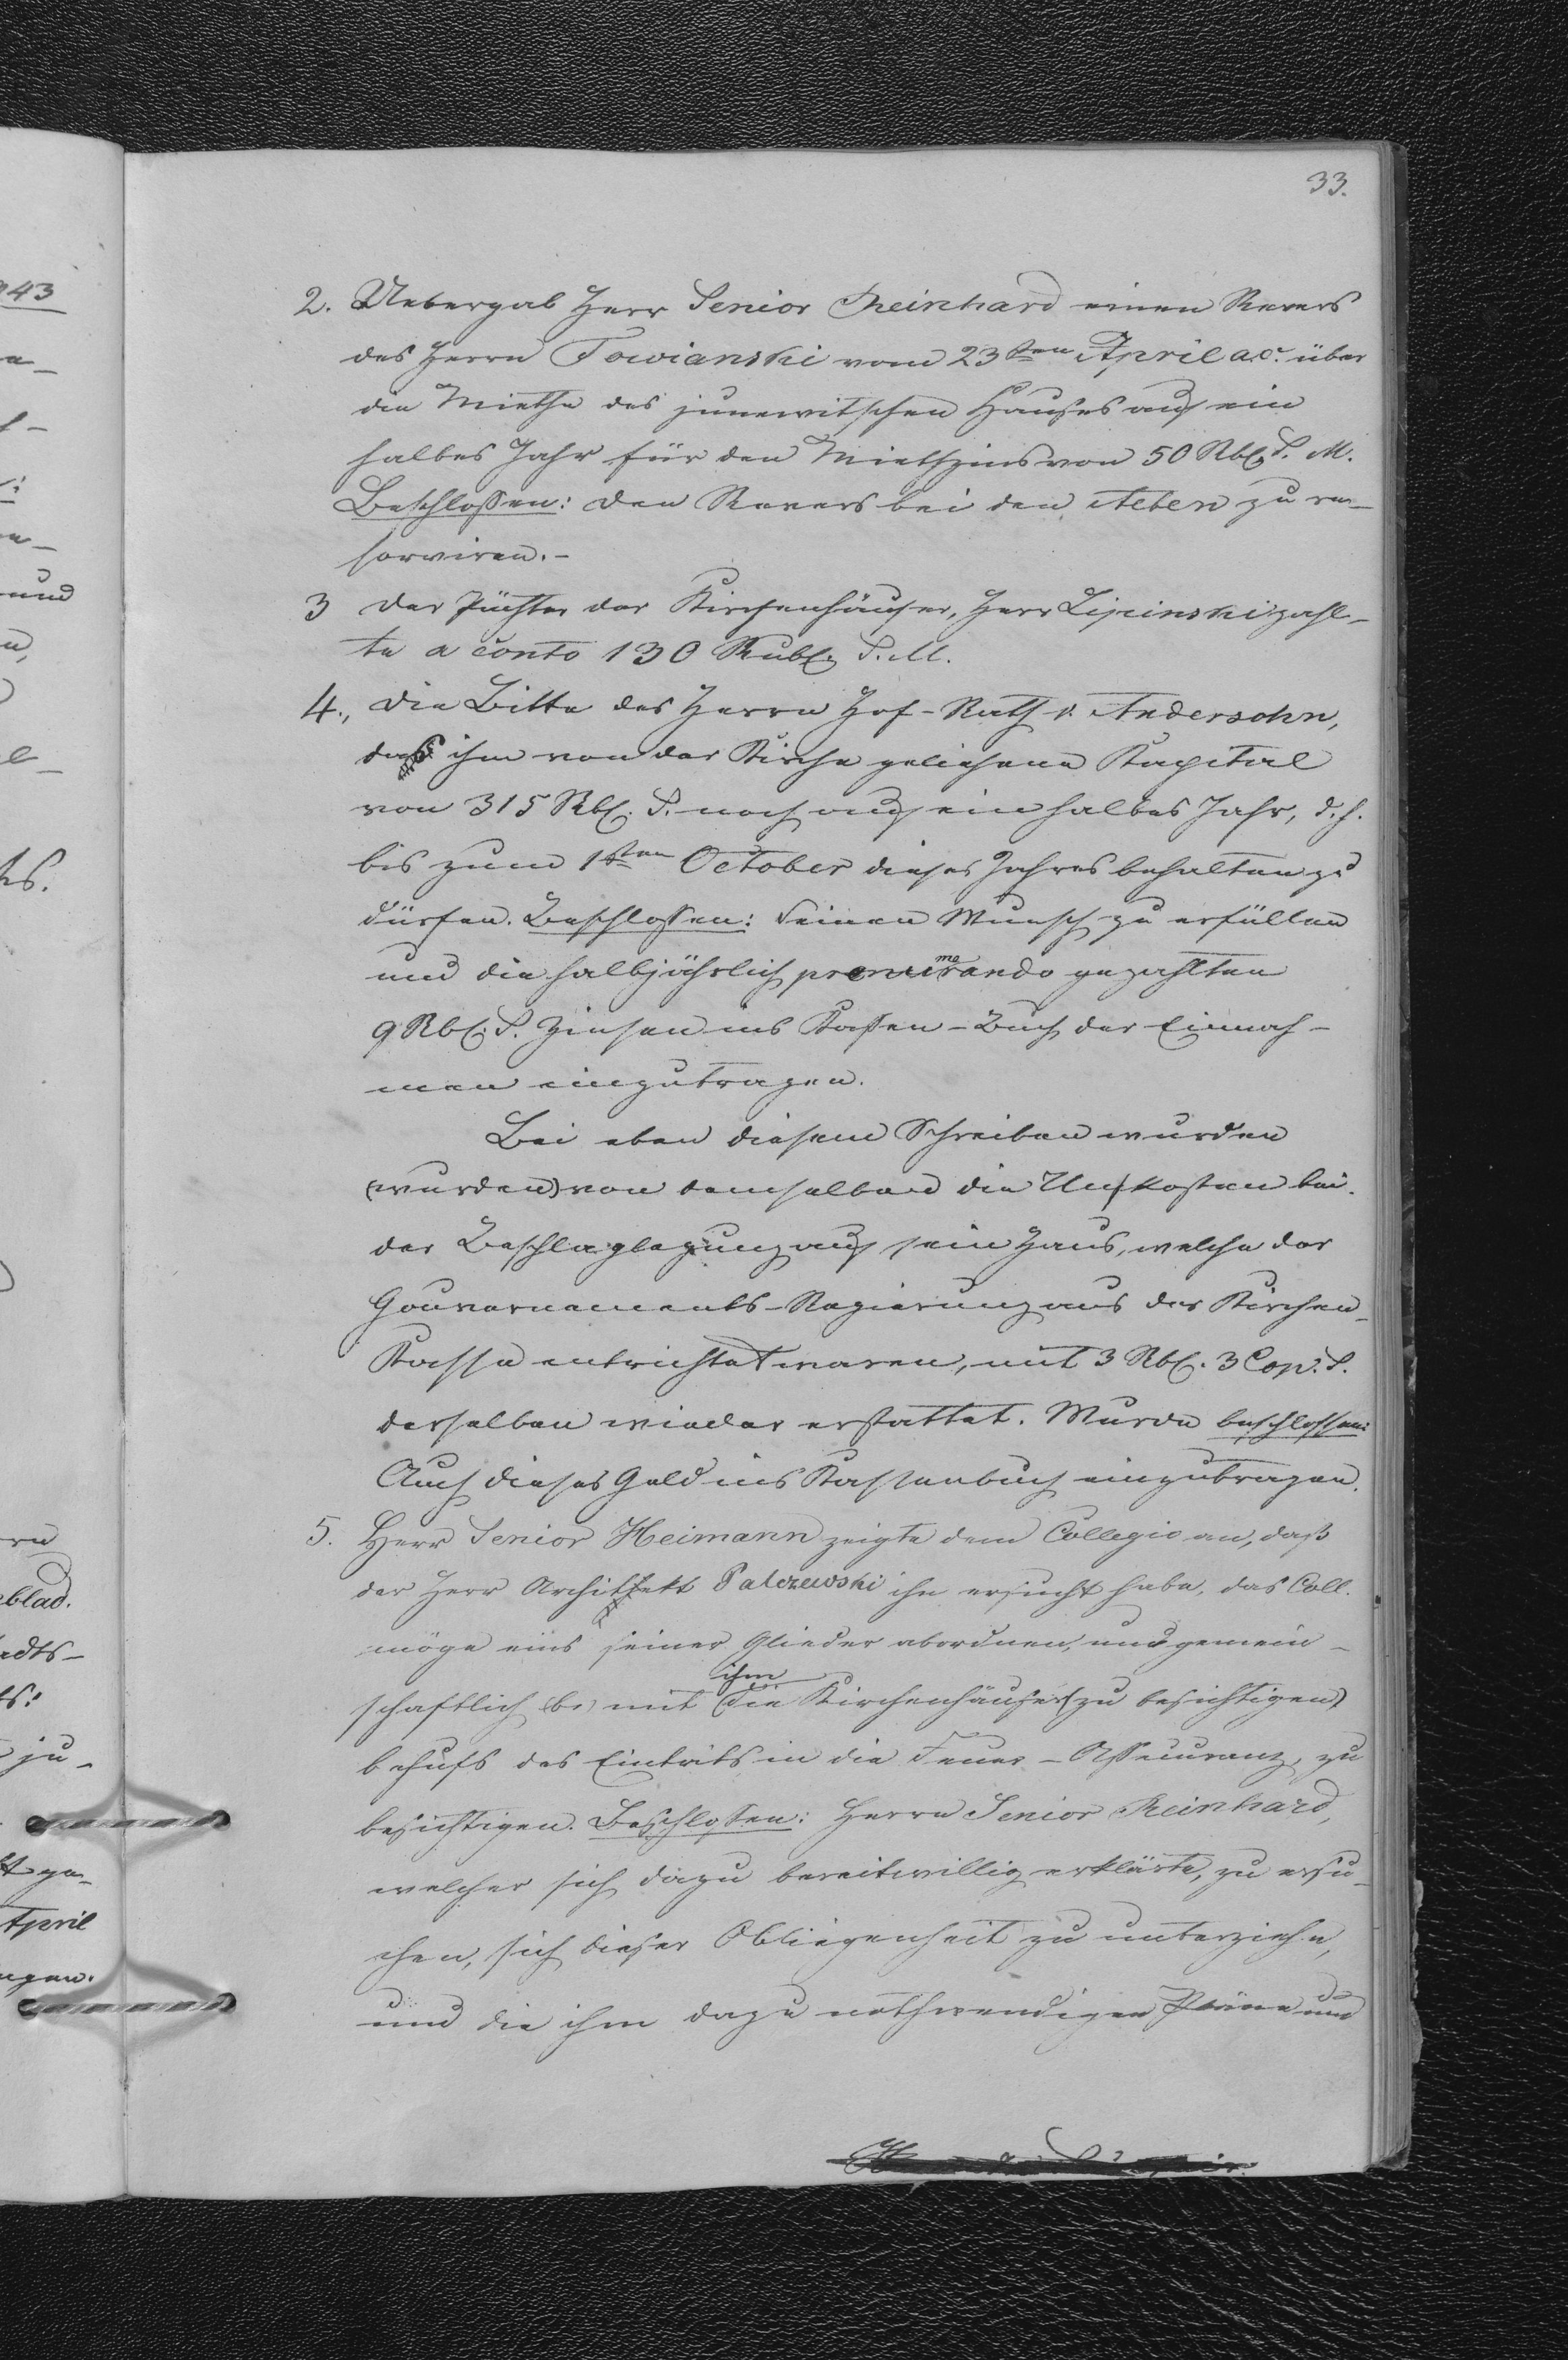 33.
2. Uebergab Herr Senior Reinhard einen Revers
des Herrn Towianski vom 23sten April a.c. über
die Miethe des junewitschen Hauses auf ein
halbes Jahr für den Miethzins von 50 Rbl. S. M.
Beschlossen: den Revers bei den Acten zu re-
serviren.-
3 Der Pächter der Kirchenhäuser, Herr Lipinski zahl-
te a conto 130 Rubl. S. M.
4., Die Bitte des Herrn Hof-Rath v. Andersohn,
das ihm von der Kirche geliehene Kapital
von 315 Rbl. S. noch auf ein halbes Jahr, d. h.
bis zum 1sten October dieses Jahres behalten zu
dürfen. Beschlossen: Seinen Wunsch zu erfüllen
und die halbjährlich gezahlten
9 Rbl. S. Zinsen ins Kassen-Buch der Einnah-
men einzutragen.
Bei eben diesem Schreiben wurden
(wurden) von demselben die Unkosten bei
der Beschlaglegung auf sein Haus, welche der
Gouvernements-Regierung aus der Kirchen-
Kasse entrichtet waren, mit 3 Rbl. 3 Cop. S.
derselben wieder erstattet. Wurde beschlossen:
Auch dieses Geld ins Kassenbuch einzutragen.
5. Herr Senior Heimann zeigte dem Collegio an, daß
der Herr Architekt Palczewski ihn ersucht habe, das Coll.
möge eins seiner Glieder abordnen, um gemein-
schaftlich (be) mit ihm (die Kirchenhäuser (zu besichtigen)
behufs des Eintrits in die Feuer-Assecuranz, zu
besichtigen. Beschlossen: Herrn Senior Reinhard,
welcher sich dazu bereitwillig erklärte, zu ersu-
chen, sich dieser Obliegenheit zu unterziehn,
und die ihm dazu nothwendigen Pläne und